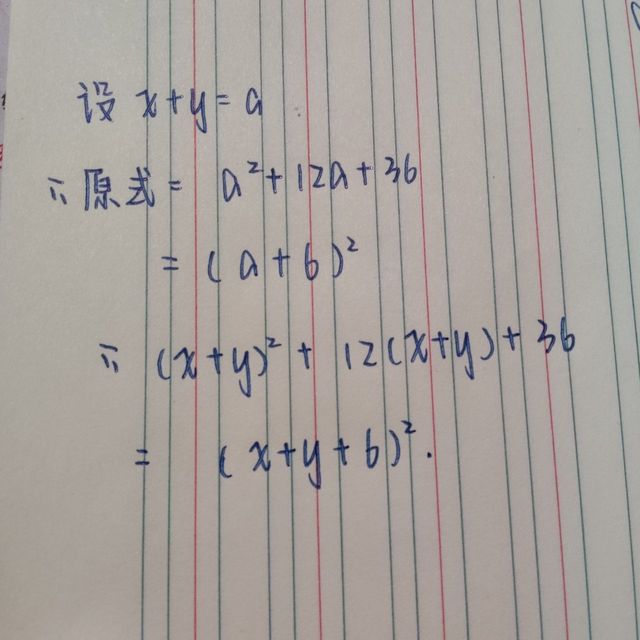 设 x+y=a
∴原式= a²+12a+36
= (a+6)²
∴ (x+y)²+12(x+y)+36
= (x+y+6)².